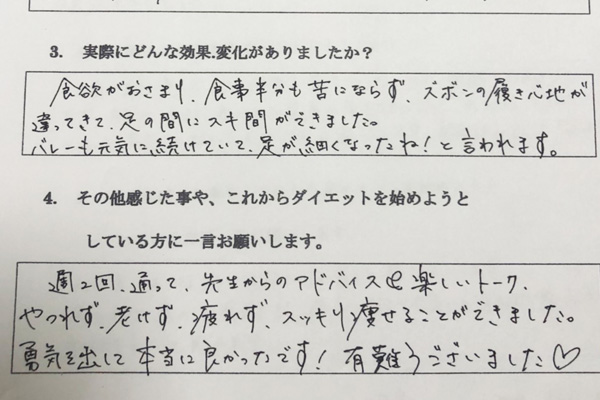 3. 実際にどんな効果.変化がありましたか？
食欲がおさまり、食事半分も苦にならず、ズボンの履き心地が
違ってきて、足の間にスキ間ができました。
バレーも元気に続けていて、足が細くなったね！と言われます。
4. その他感じた事や、これからダイエットを始めようと
している方に一言お願いします。
週2回、通って、先生からのアドバイスと楽しいトーク、
やつれず、老けず、疲れず、スッキリ痩せることができました。
勇気を出して本当に良かったです！有難うございました♡